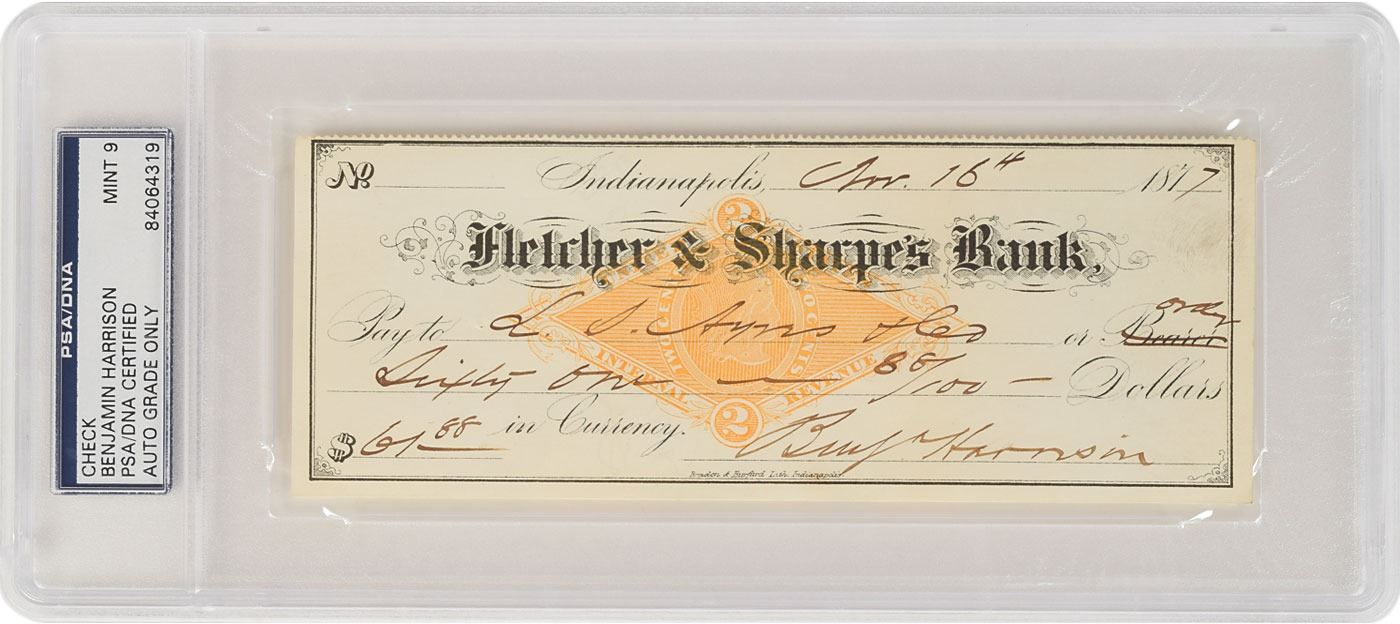 PSA/DNA
CHECK MINT 9
BENJAMIN HARRISON
PSA/DNA CERTIFIED
AUTO GRADE ONLY 84064319
No. Indianapolis, Nov. 16th 1877
Fletcher & Sharpe's Bank,
Pay to L. S. Ayres & Co or Bearer order
Sixty one 88/100 Dollars
$61.88 in Currency. Benj Harrison
TWO CENTS
INTERNAL REVENUE
2
2
Braden & Burford Lith. Indianapolis.